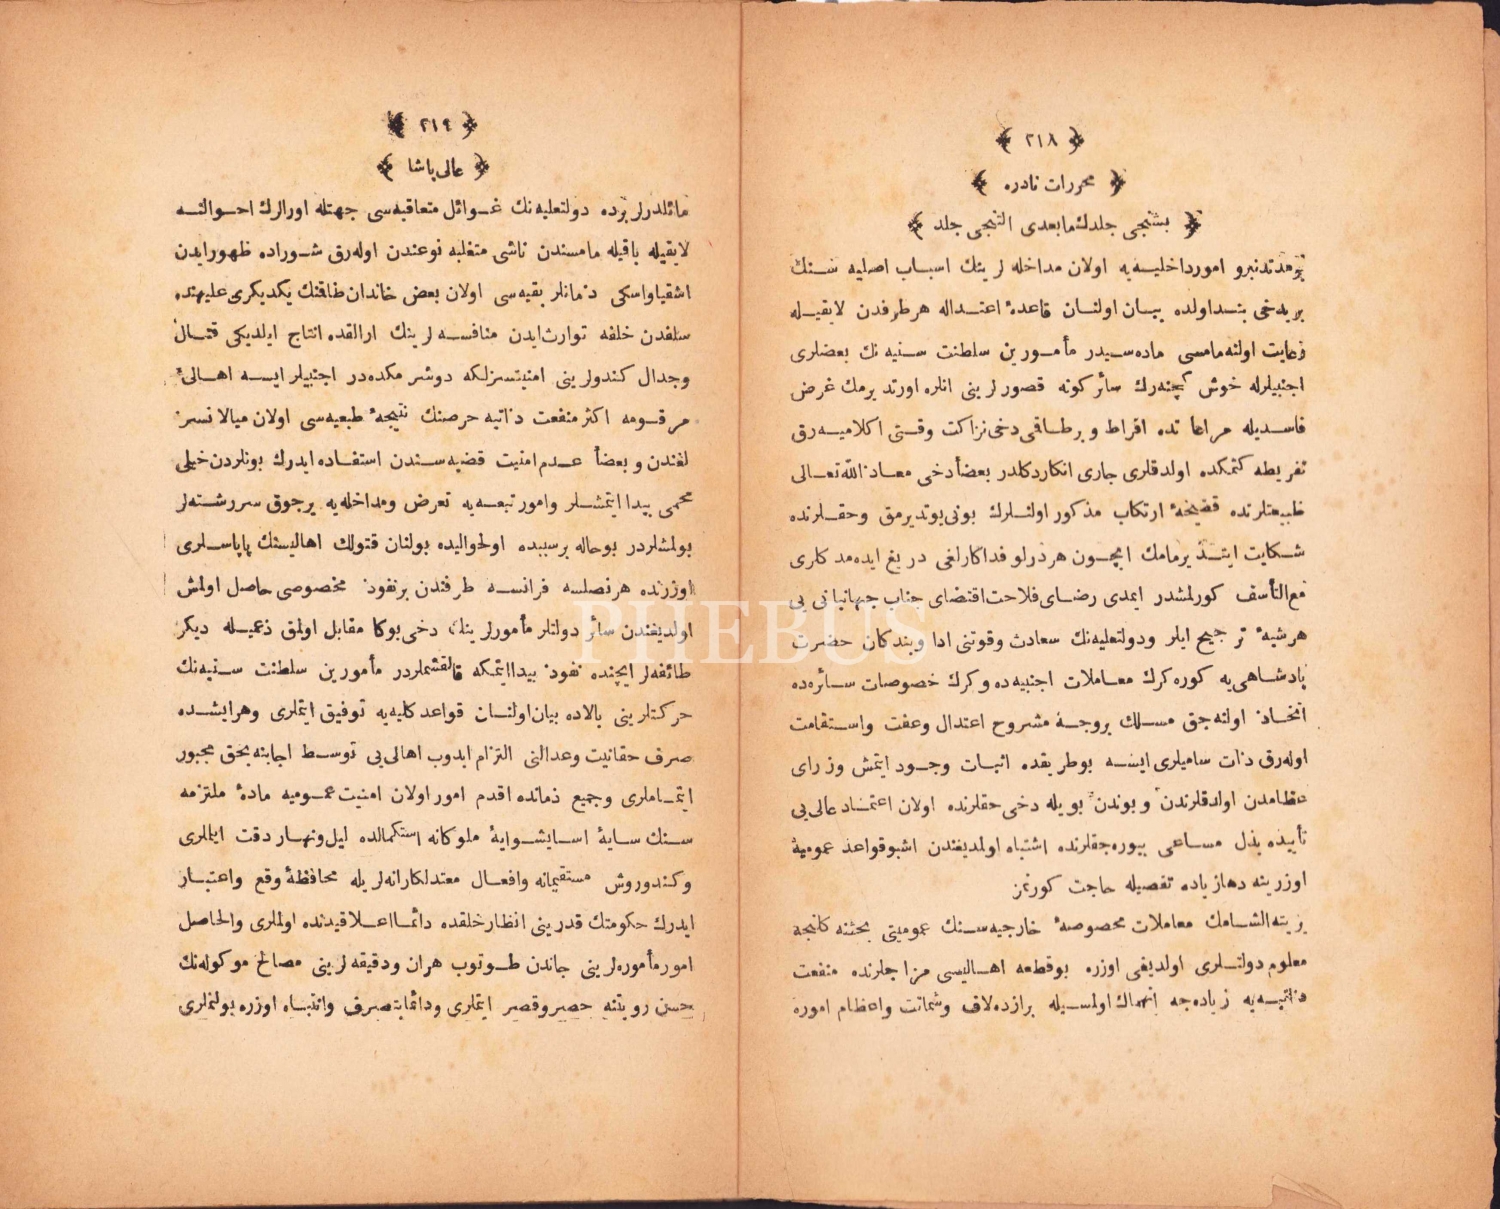 ﴿ ٢١٨ ﴾
﴿ محررات نادره ﴾
﴿ بشنجی جلدك مابعدی التنجی جلد ﴾
بر مدتدنبرو امور داخلیه‌یه اولان مداخله لرینك اسباب اصلیه سنك
بریدخی بتداولده بیان اولنان قاعدهٔ اعتداله هر طرفدن لایقیله
رعایت اولنه‌مامسی ماده‌سیدر مأمورین سلطنت سنیه نك بعضلری
اجنبیلرله خوش كچنه‌رك سائر كونه قصورلرینی انلره اورتدیرمك غرض
فاسدیله مراعاتده افراط و برطاقی دخی نزاكت وقتی اكلامیه‌رق
تفریطه كتمكده اولدقلری جاری انكار دكلدر بعضاً دخی معاذ الله تعالی
طبیعتلرنده فضیحهٔ ارتكاب مذكور اولنلرك بونی بوتدیرمق وحقلرنده
شكایت ایتدیرمامك ایچون هر درلو فداكارلغی دریغ ایده‌مدكلری
مع التأسف كورلمشدر ایمدی رضای فلاحت اقتضای جناب جهانبانی یی
هر شیئه ترجیح ایلر ودولتعلیه‌نك سعادت وقوتنی ادا وبندكان حضرت
پادشاهی‌یه كوره كرك معاملات اجنبیه‌ده وكرك خصوصات سائره‌ده
اتخاذ اولنه‌جق مسلك بروجه مشروح اعتدال وعفت واستقامت
اوله‌رق ذات سامیلری ایسه بوطریقده اثبات وجود ایتمش وزرای
عظامدن اولدقلرندن وبوندن بویله دخی حقلرنده اولان اعتماد عالی‌یی
تأییده بذل مساعی بیوره‌جقلرنده اشتباه اولمدیغندن اشبو قواعد عمومیهٔ
اوزرینه دها زیاده تفصیله حاجت كورنمز
برّیة الشامك معاملات مخصوصهٔ خارجیه‌سنك عمومیتی بحثنه كلنجه
معلوم دولتلری اولدیغی اوزره بوقطعه اهالیسی مزاجلرنده منفعت
ذاتیه‌یه زیاده‌جه انهماك اولمسیله برازده لاف وشماتت واعظام اموره
﴿ ٢١٩ ﴾
﴿ عالی پاشا ﴾
مائلدرلر برده دولتعلیه‌نك غوائل متعاقبه‌سی جهتله اورالرك احوالنه
لایقیله باقیله مامسندن ناشی متغلبه نوعندن اوله‌رق شوراده ظهور ایدن
اشقیا واسكی زمانلر بقیه‌سی اولان بعض خاندان طاقنك یكدیكری علیهنده
سلفدن خلفه توارث ایدن منافسه لرینك ارالقده انتاج ایلدیكی قتال
وجدال كندولرینی امنیتسزلكه دوشرمكده‌در اجنبیلر ایسه اهالیٔ
مرقومه اكثر منفعت ذاتیه حرصنك نتیجهٔ طبیعیه‌سی اولان میالانسز
لغندن وبعضاً عدم امنیت قضیه‌سندن استفاده ایدرك بونلردن خیلی
محمی پیدا ایتمشلر وامور تبعه‌یه تعرض ومداخله‌یه برچوق سررشته‌لر
بولمشلردر بوحاله برسببده اولحوالیده بولنان قتولك اهالیسنك پاپاسلری
اوزرنده هر نصلسه فرانسه طرفندن برنفوذ مخصوصی حاصل اولمش
اولدیغندن سائر دولتلر مأمورلرینك دخی بوكا مقابل اولمق زعمیله دیكر
طائفه‌لر ایچنده نفوذ پیدا ایتمكه قالقشملردر مأمورین سلطنت سنیه‌نك
حركتلرینی بالاده بیان اولنان قواعد كلیه‌یه توفیق ایتملری وهر ایشده
صرف حقانیت وعدالتی التزام ایدوب اهالی‌یی توسط اجانبه بحق مجبور
ایتماملری وجمیع زمانده اقدم امور اولان امنیت عمومیه مادهٔ ملتزمه
سنك سایهٔ اسایشوایهٔ ملوكانه استكمالده لیل ونهار دقت ایتملری
وكندوروش مستقیمانه وافعال معتدلكارانه‌لریله محافظهٔ وقع واعتبار
ایدرك حكومتك قدرینی انظار خلقده دائما اعلا قیدنده اولملری والحاصل
امور مأموره‌لرینی جاندن طوتوب هر ان ودقیقه‌لرینی مصالح موكوله‌نك
حسن رویتنه حصر وقصر ایتملری ودائما بتصرف وانتباه اوزره بولنملری
PHEBUS